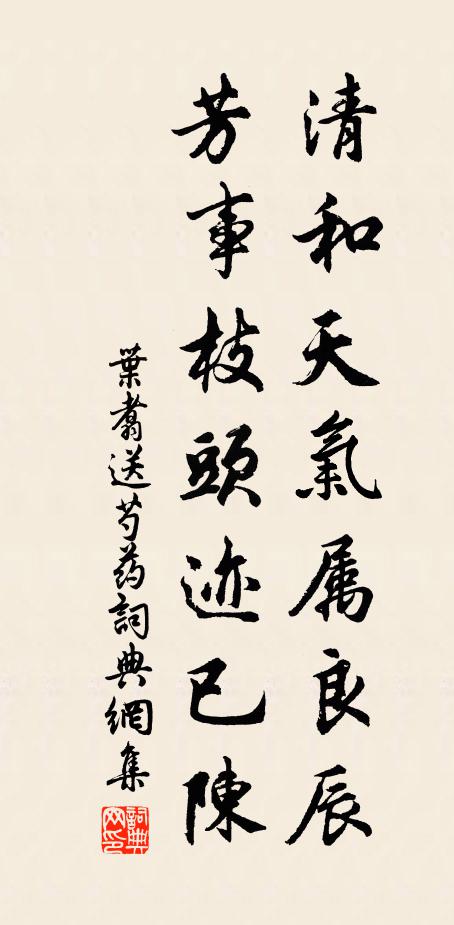 清和天氣属良辰
芳事枝頭迹已陳
葉翥送芍药詞典網集
詞典网印